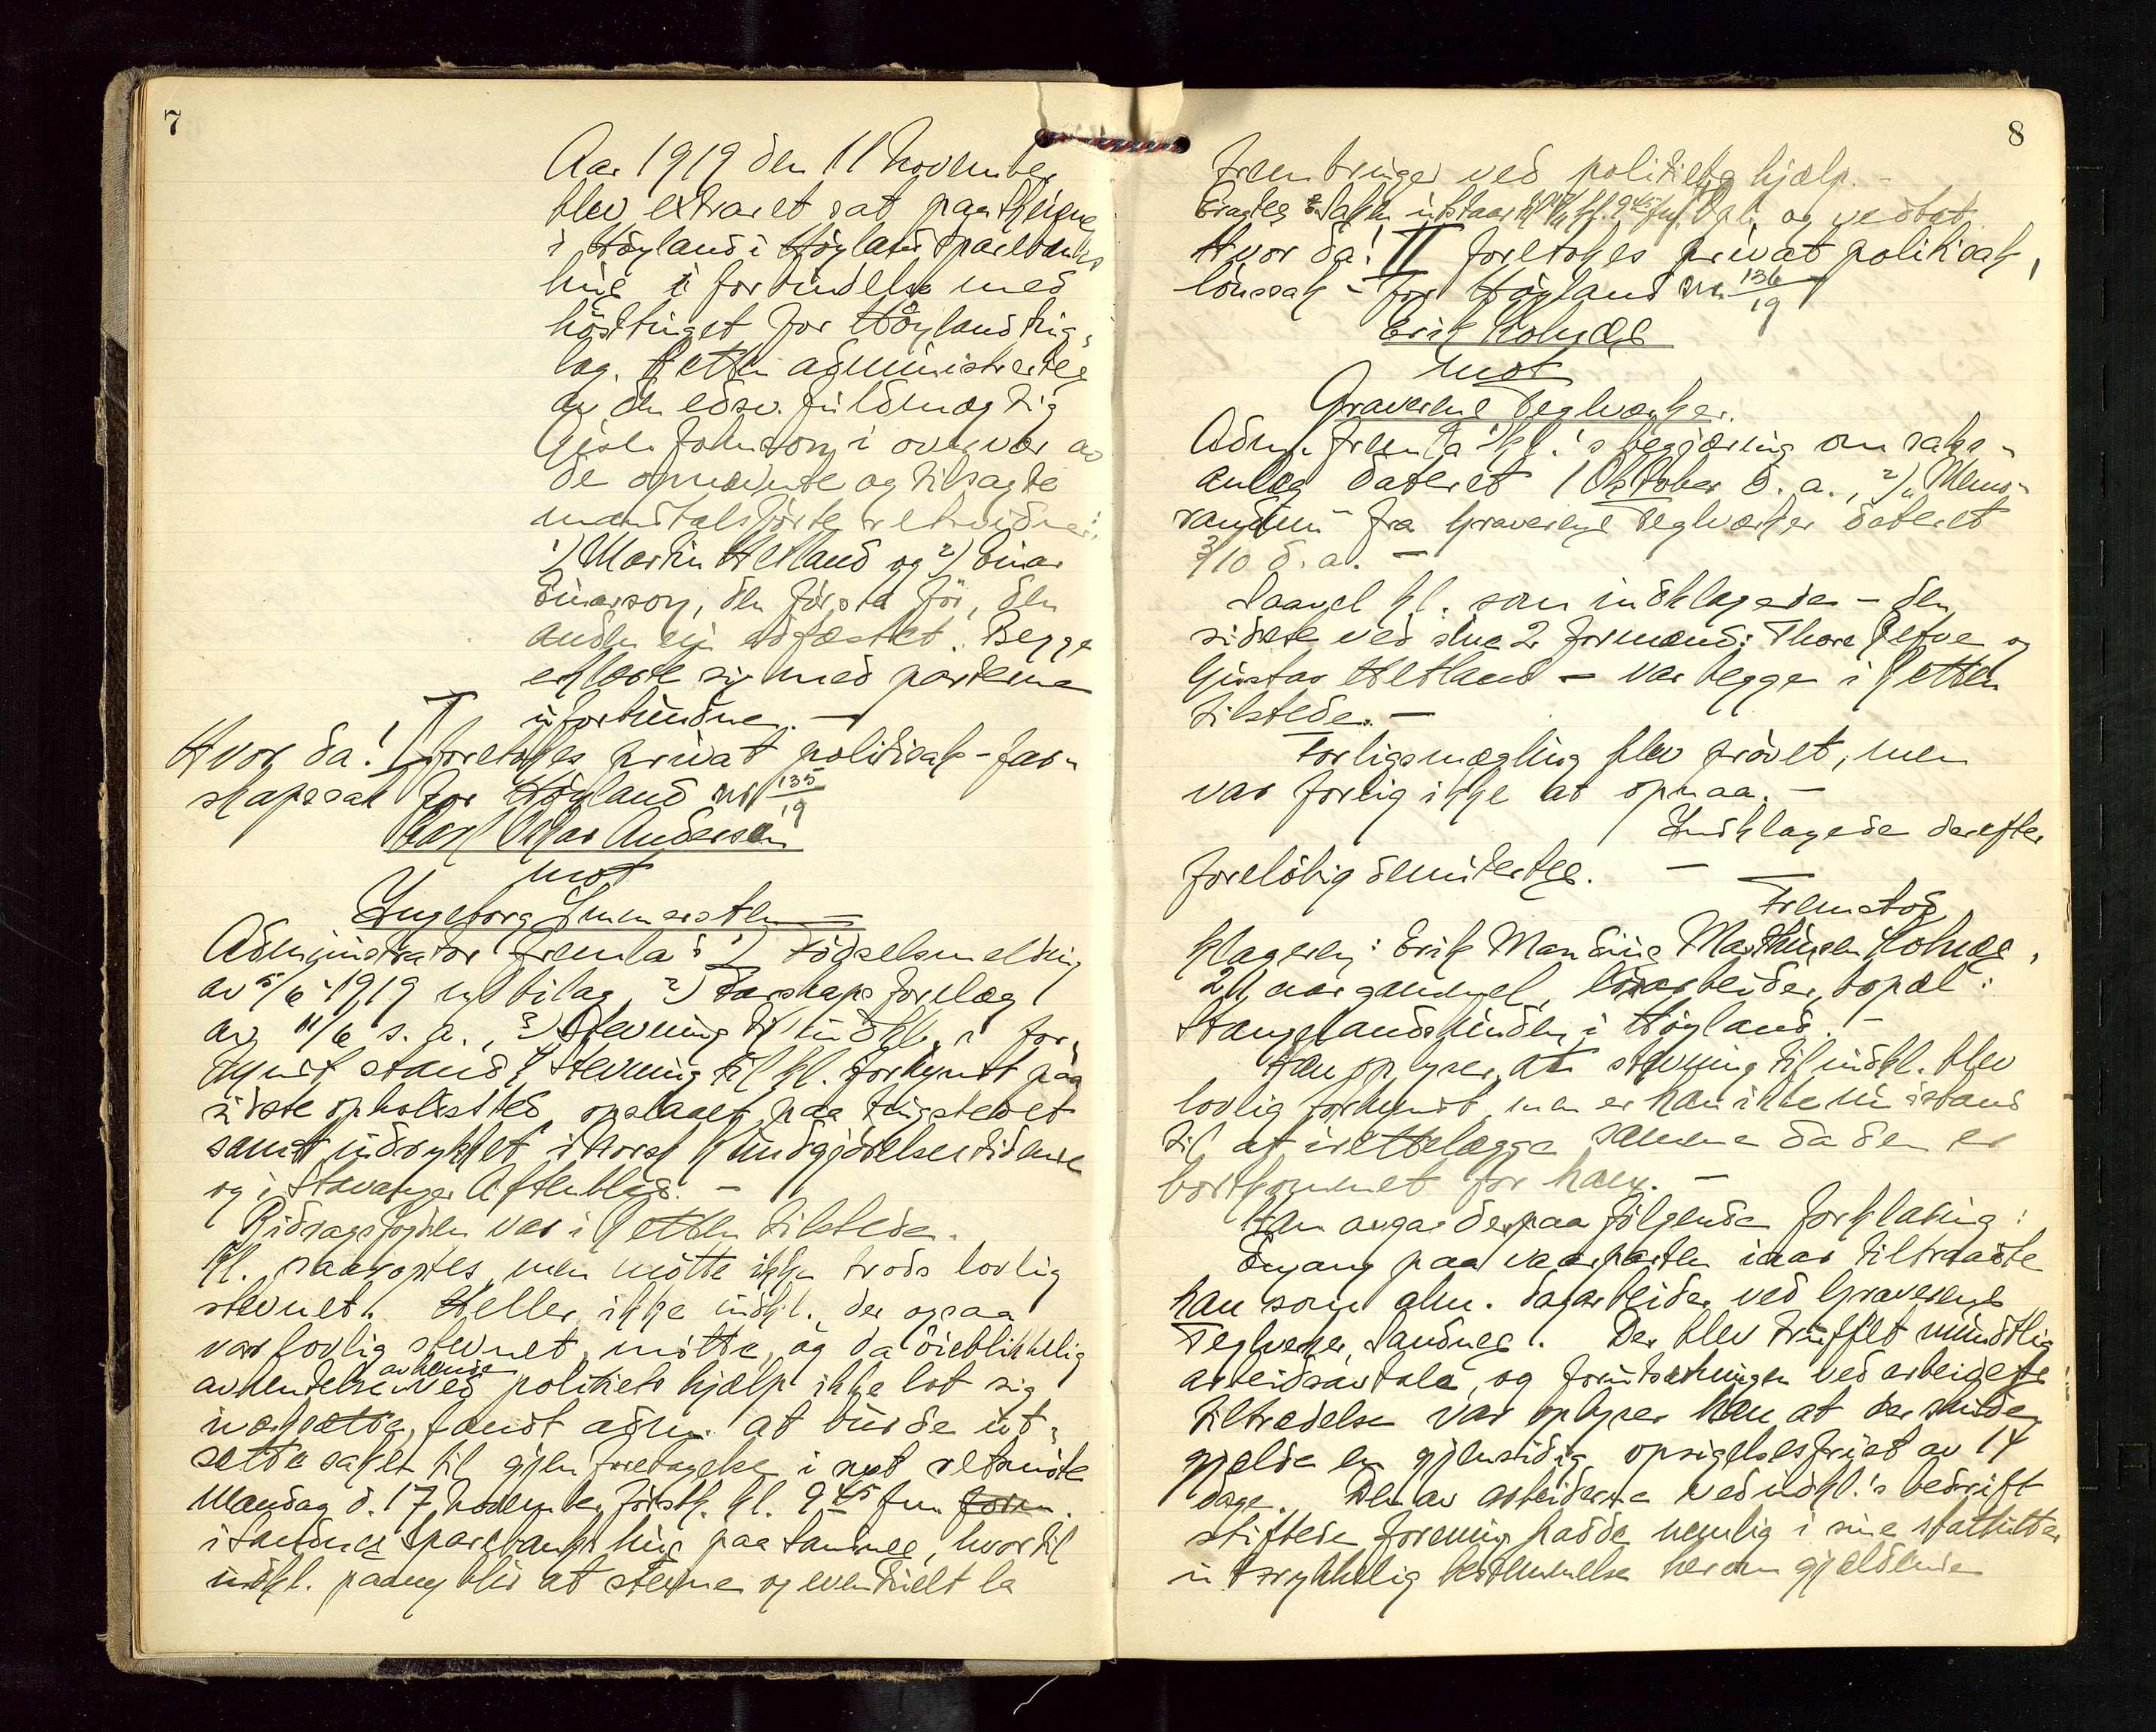 7
Aar 1919 den 11 November
blev extraret sat paa
i Høyland i Høyland Sparebanks
hus i forbindelse med
høsttinget for Høyland ting-
lag. Retten administrertes
av den edsv. fuldmægtig
Gisle Johnson, i overvær av
de opnævnte og tilsagte
mandtalsførte retsvidner:
1) Martin Hetland og 2) Einar
Einarson, den første før, den
anden ei edfæstet. Begge
erklærte sig med parterne
uforbundne. –
Hvor da! I foretokes privat politisak – far-
skapssak for Høyland nr 135/19
Karl Oskar Andersen
mot
Ingeborg Immersten
Administrator fremla: 1) Fødselsmelding
av 5/6 1919 m/ bilag, 2) Farskaps forelæg
av 11/6 s. a., 3) Stevning til indkl. i for-
kyndt stand, 4) Stevning til kl. forkyndt paa
sidste opholdssted, opslaaet paa tingstedet
samt indrykket i Norsk Kundgjørelsestidende
og i Stavanger Aftenblad. –
Bidragsfogden var i Retten tilstede.
Kl. paaroptes, men møtte ikke trods lovlig
stevnet. Heller ikke indkl., der ogsaa
var lovlig stevnet, møtte, og da øieblikkelig
avhentelse av hende ved politiets hjælp ikke lot sig
iverksætte, fandt adm. at burde ut-
sette saken til gjenforetagelse i nyt retsmøte
Mandag d. 17 november førstk. kl. 9 45 fm form.
i Sandnes Sparebanks hus paa Sandnes, hvortil
indkl. paany blir at stevne og eventuelt la
8
frembringe ved politiets hjælp. –
Eragtes: Saken utstaar til 17/11 kl. 9 45 fm. Opl. og vedtat.
Hvor da! II foretokes privat politisak,
lønssak – for Høyland nr 136/19
Erik Holnæs
mot
Graverens Teglverker.
Adm. fremla kl.'s begjæring om saks-
anlæg dateret 1 Oktober d. a., 2) "Memo-
randum" fra Graverens Teglverker dateret
3/10 d. a. –
Saavel kl. som indklagede – den
sidste ved sine 2 formænd: Thore Refve og
Gustav Hetland – var begge i Retten
tilstede. –
Forligsmægling blev prøvet, men
var forlig ikke at opnaa. –
Indklagede derefter
foreløbig demitertes. –
Fremstod
klageren: Erik Mandius Marthinsen Holnæs,
21 aar gammel, løsarbeider, bopæl:
Stangelandslunden, i Høyland. –
Han oplyser, at stevning til indkl. blev
lovlig forkyndt, men er han ikke nu istand
til at irettelægge samme da den er
bortkommet for ham. –
Han avgav derpaa følgende forklaring:
Engang paa vaarparten iaar tiltraadte
han som alm. dagarbeider ved Graverens
Teglverker, Sandnes. Der blev truffet mundtlig
arbeidsavtale, og forutsætningen ved arbeidets
tiltrædelse var oplyser han, at der skulde
gjelde en gjensidig opsigelsesfrist av 14
dage. Den av arbeiderne ved indkl.'s bedrift
stiftede forening hadde nemlig i sine statutter
utrykkelig bestemmelse herom gjældende